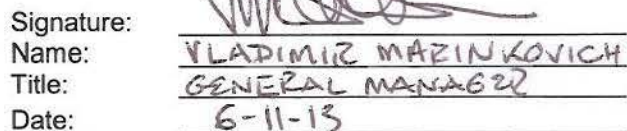 Signature:
Name: VLADIMIR MARINKOVICH
Title: GENERAL MANAGER
Date: 6-11-13